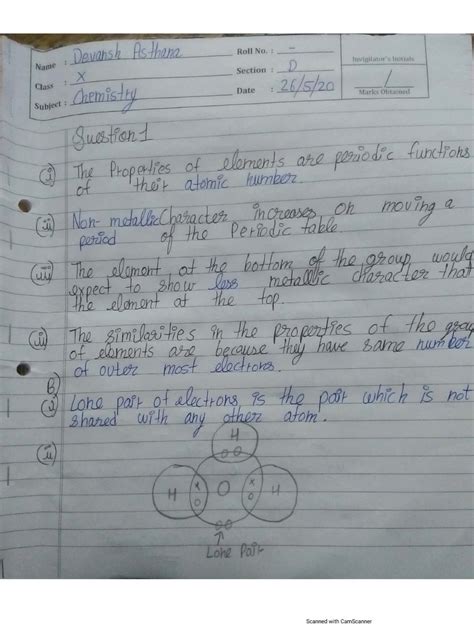 Name : Devansh Asthana
Roll No. : -
Invigilator's Initials
Class : X
Section : D
Subject : Chemistry
Date : 26/5/20
Marks Obtained
Question 1
(i) The Properties of elements are periodic functions
of their atomic number.
(ii) Non-metallic Character increases on moving a
period of the Periodic table.
(iii) The element at the bottom of the group would
expect to show less metallic character that
the element at the top.
(iv) The similarities in the properties of the group
of elements are because they have same number
of outer most electrons.
B)
(i) Lone pair of electrons is the pair which is not
shared with any other atom.
(ii)
H
H O H
Lone Pair
Scanned with CamScanner